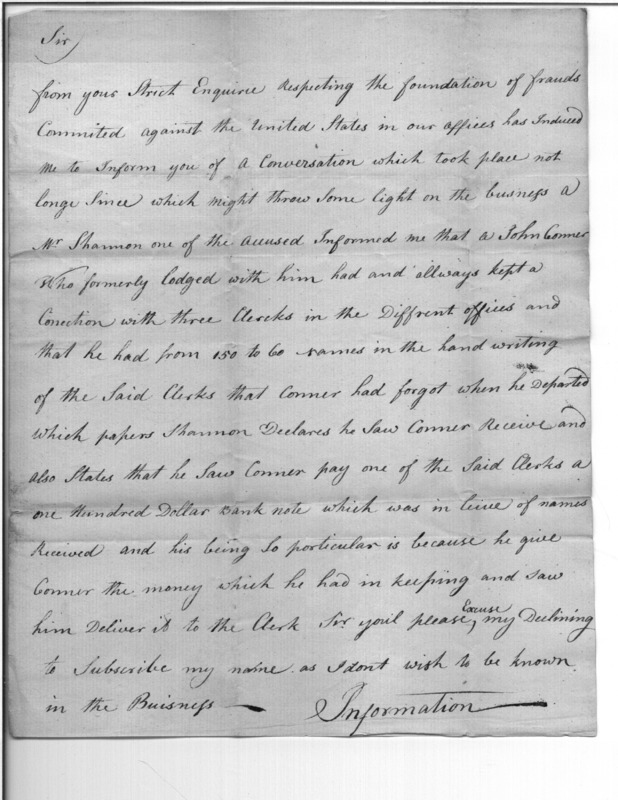 Sir
from your Strict Enquirie Respecting the foundation of frauds
Committed against the United States in our offices has Induced
me to Inform you of a Conversation which took place not
longe Since which might throw Some light on the busness a
Mr Shannon one of the accused Informed me that a John Conner
Who formerly lodged with him had and allways kept a
Conection with three Clercks in the Diffrent offices and
that he had from 150 to 60 names in the hand writing
of the Said Clerks that Conner had forgot when he Departed
which papers Shannon Declares he Saw Conner Receive and
also States that he Saw Conner pay one of the Said Clerks a
one Hundred Dollar Bank note which was in lieue of names
Received and his being So particular is because he give
Conner the money which he had in keeping and saw
him Deliver it to the Clerk Sir youil please, Excuse my Declining
to Subscribe my name as I dont wish to be known
in the Buisness — Information —